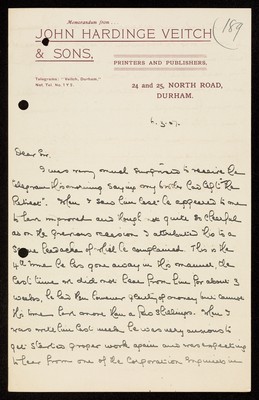 Memorandum from...
(189
JOHN HARDINGE VEITCH
& SONS,
PRINTERS AND PUBLISHERS,
Telegrams: "Veitch, Durham."
Nat. Tel. No. 193
24 and 25, NORTH ROAD,
DURHAM.
6.3.07.
Dear Sir,
I was very much surprised to receive the
telegram this morning saying my brother had left "the
Retreat". When I saw him last he appeared to me
to have improved and though not quite so cheerful
as on the previous occasion I attributed this to a
severe headache of which he complained. This is the
4th time he has gone away in this manner, the
last time we did not hear from him for about 3
weeks, he had then however plenty of money but cannot
this time have more than a few shillings. When I
was with him last week he was very anxious to
get started proper work again and was expecting
to hear from one of the Corporation Engineers in